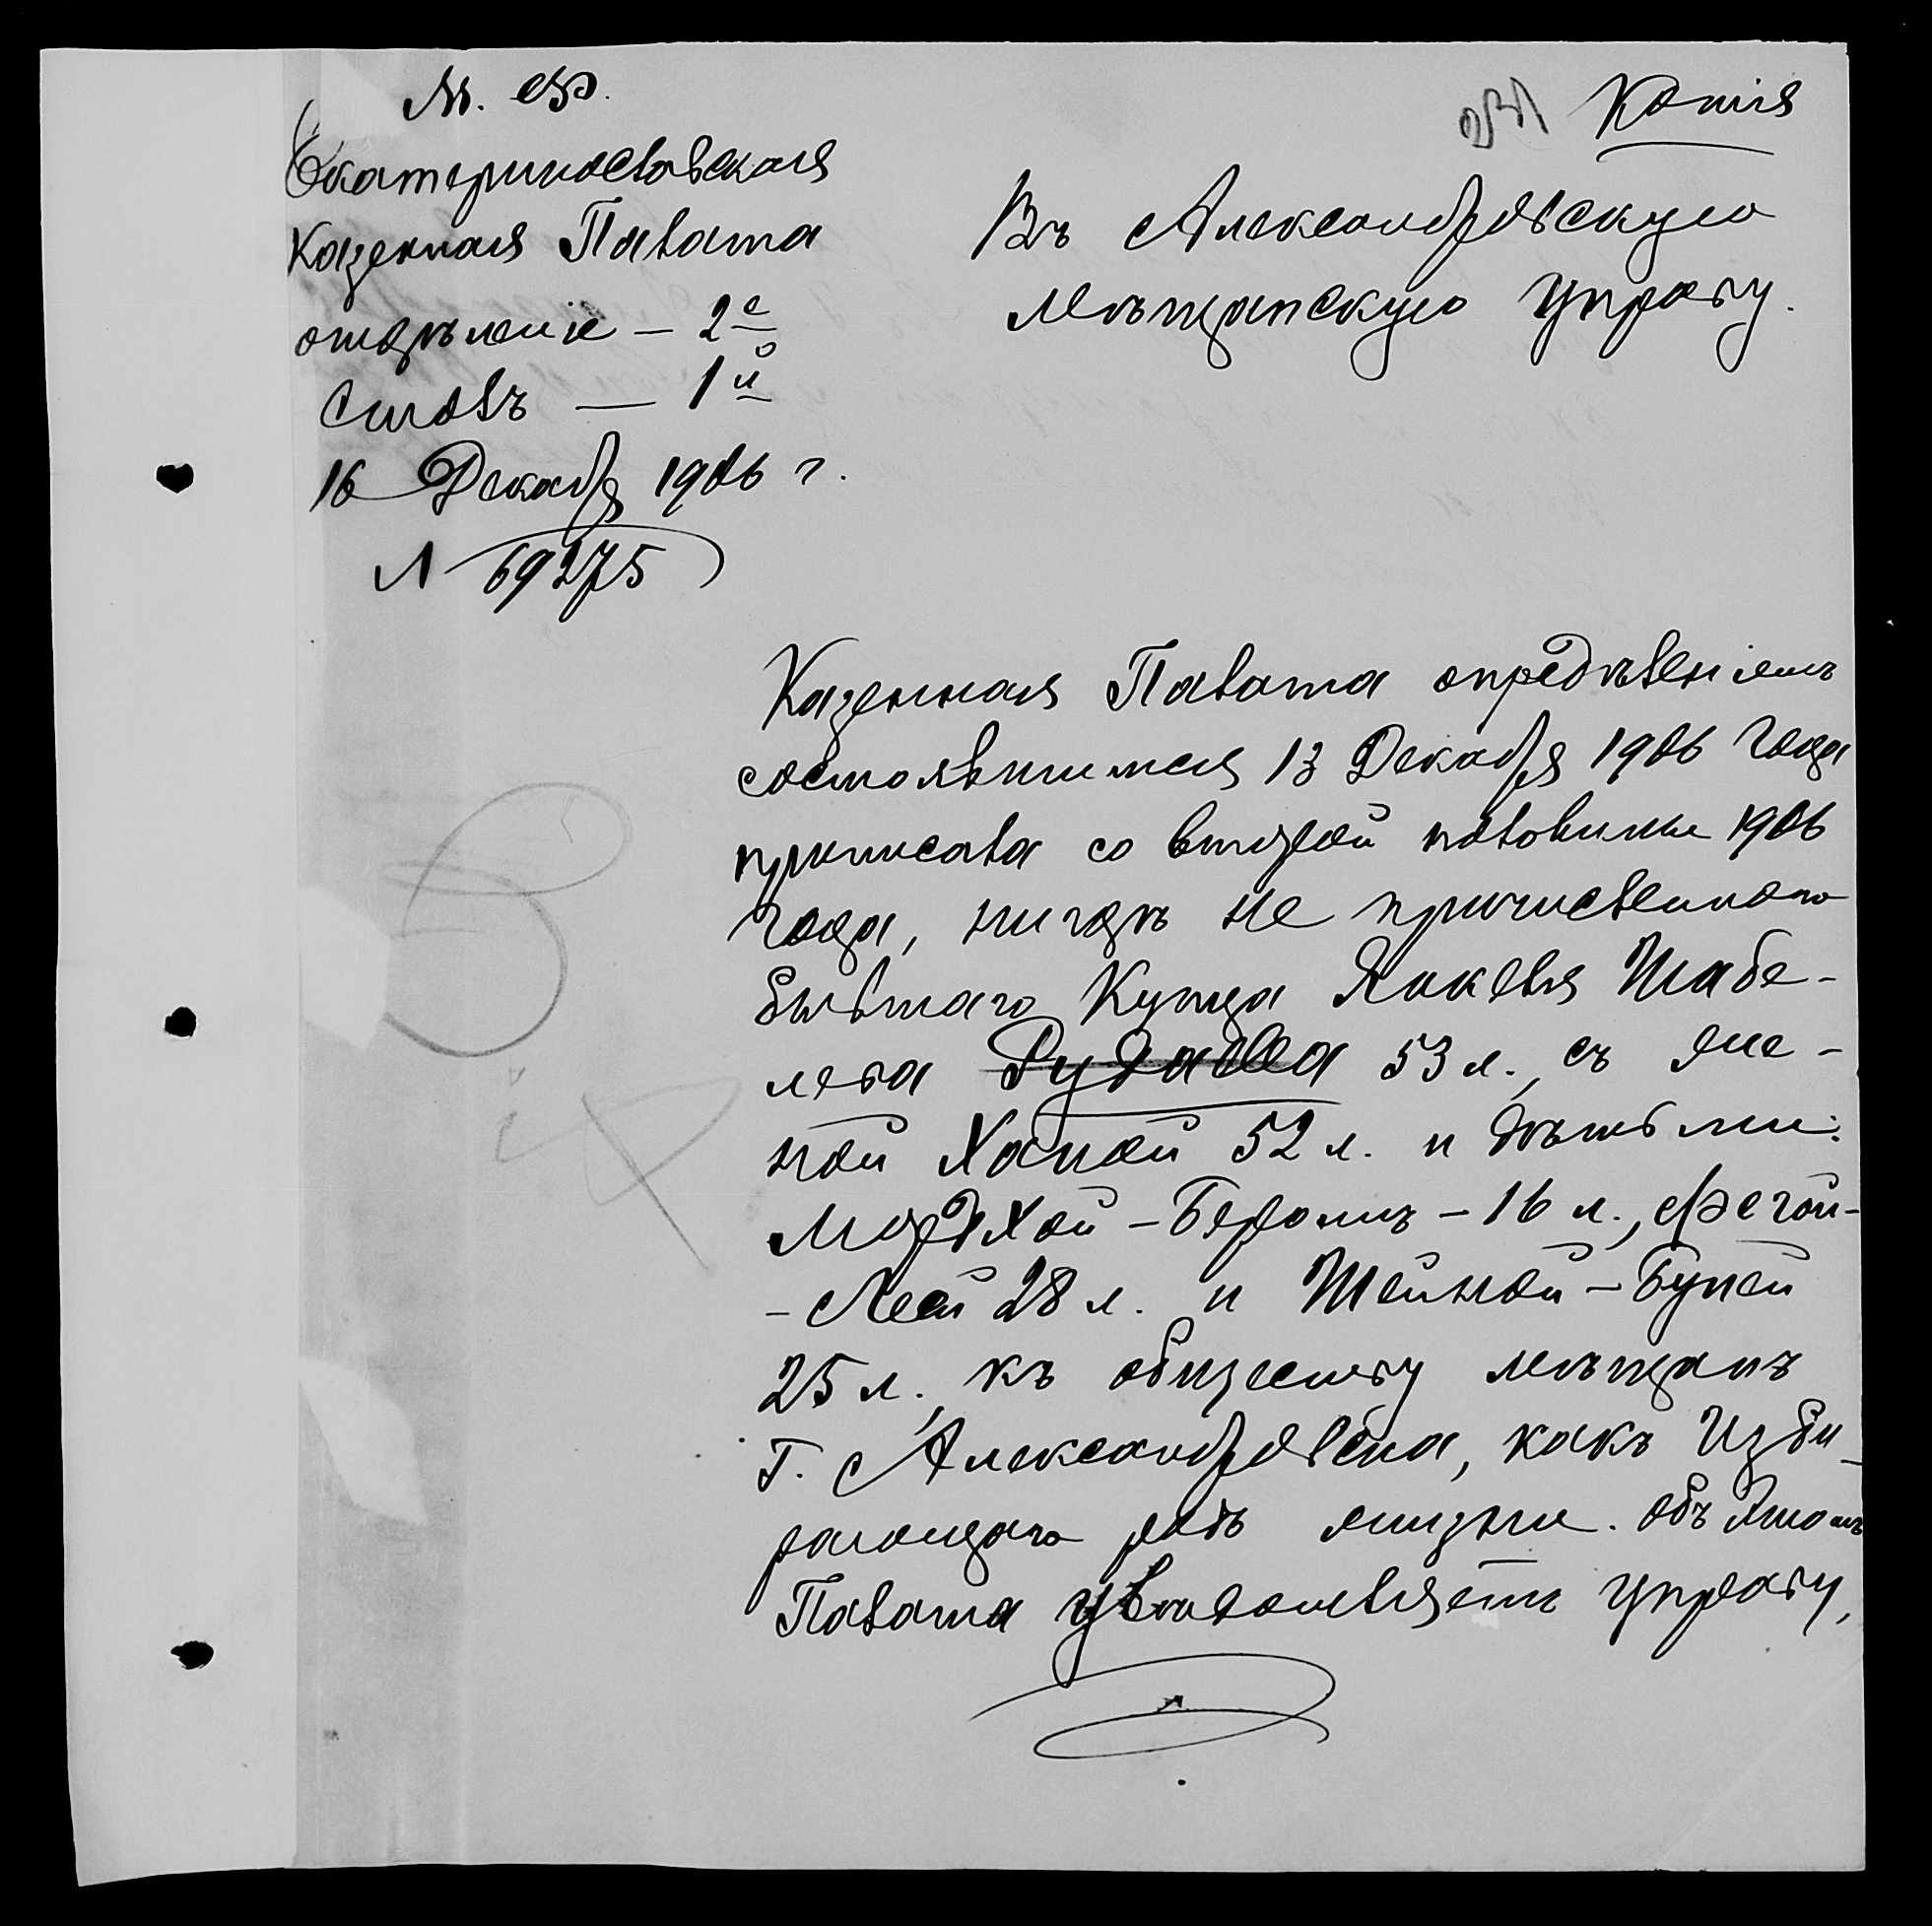 М. Ф.
Екатеринославская
Казенная Палата
отдѣленіе — 2е
Столъ — 1й
16 Декабря 1906 г.
№ 69275
Копія
Въ Александровскую
Мѣщанскую Управу.
Казенная Палата опредѣленіемъ
состоявшимся 13 Декабря 1906 года
приписала со второй половины 1906
года, нигдѣ не причисленного
бывшаго Купца Янкеля Шабе-
лева Рудаева 53 л., съ же-
ной Ханой 52 л. и дѣтьми:
Мордхой-Беромъ - 16 л., Фегой-
-Леей 28 л. и Шейной-Буней
25 л., къ обществу мѣщанъ
г. Александровска, какъ Изби-
рающаго родъ жизни. Объ этомъ
Палата увѣдомляетъ Управу,